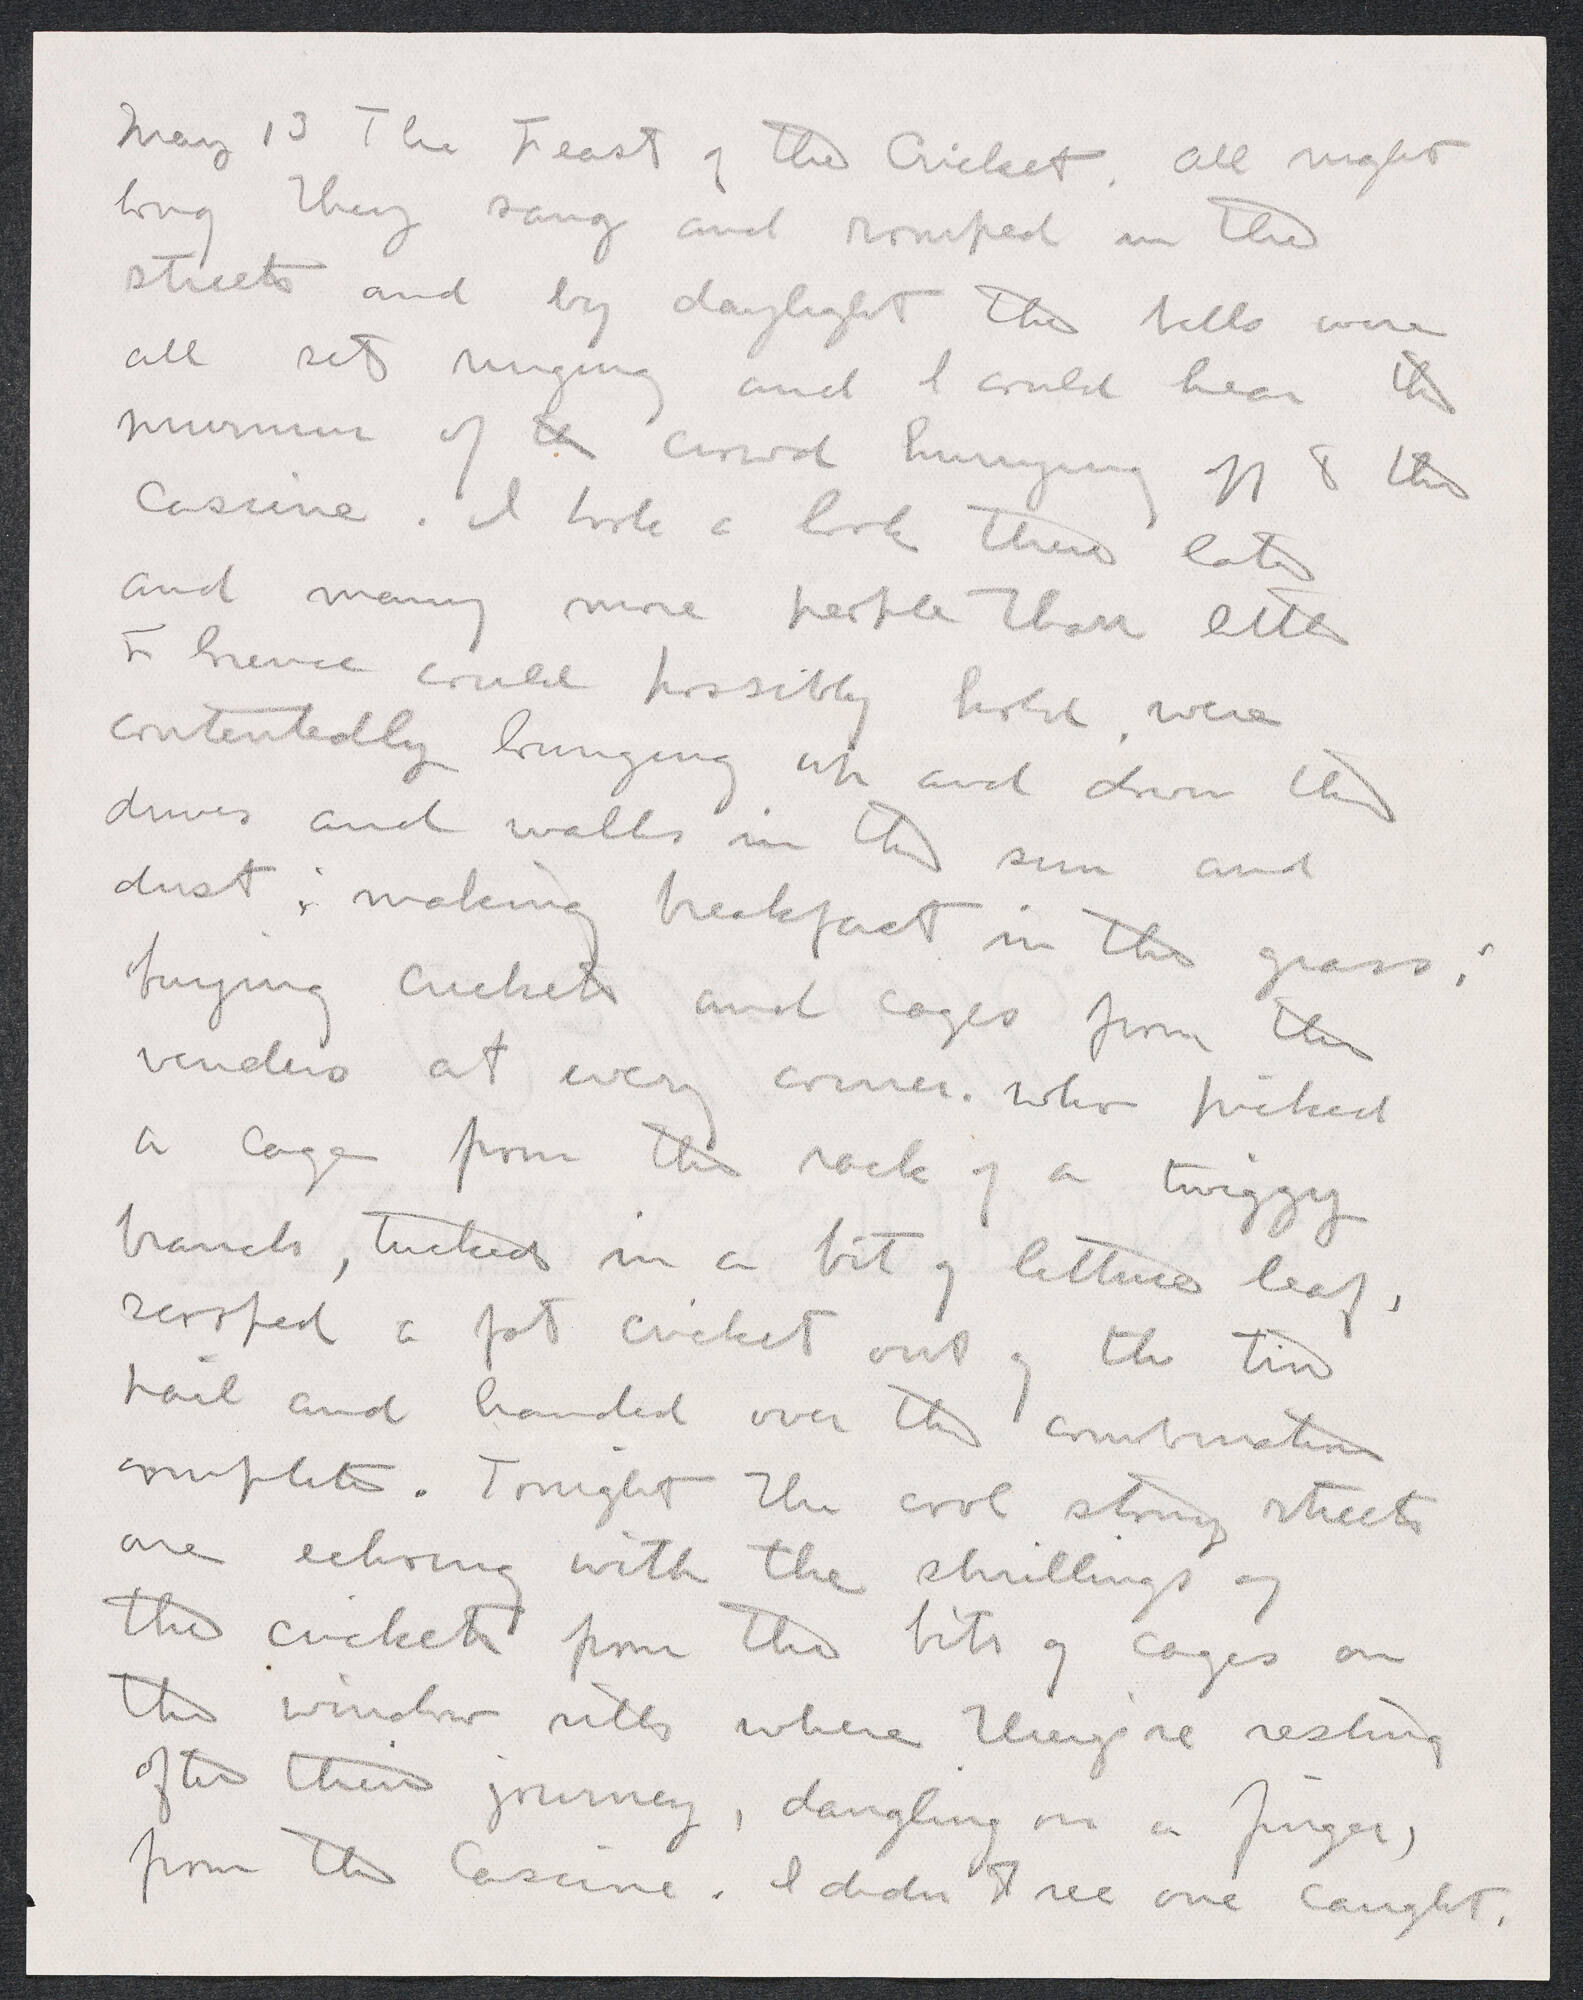 May 13 The Feast of the Cricket. All night
long they sang and romped in the
streets and by daylight the bells were
all set ringing and I could hear the
murmur of the crowd hurrying off to the
Cascine. I took a look there later
and many more people than little
Florence could possibly hold, were
contentedly lounging up and down the
drives and walks in the sun and
dust; making breakfast in the grass;
buying crickets and cages from the
venders at every corner. who picked
a cage from the rack of a twiggy
branch, tucked in a bit of lettuce leaf,
scooped a fat cricket out of the tin
pail and handed over the combination
complete. Tonight the cool stony streets
are echoing with the shrillings of
the crickets from the bits of cages on
the window sills where they're resting
after their journey, dangling on a finger,
from the Cascine. I didn't see one caught.